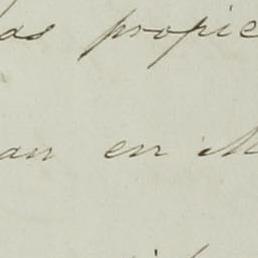 as propie
an en M